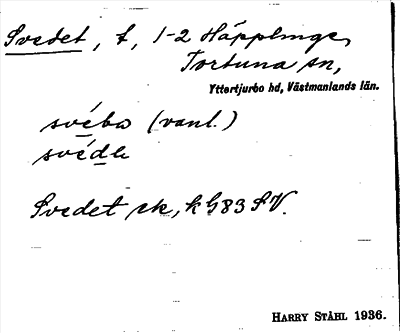 Svedet, t, 1-2 Häpplinge,
Tortuna sn,
Yttertjurbo hd, Västmanlands län.
(vanl.)
Svedet sk, k G83 SV.
HARRY STÅHL 1936.